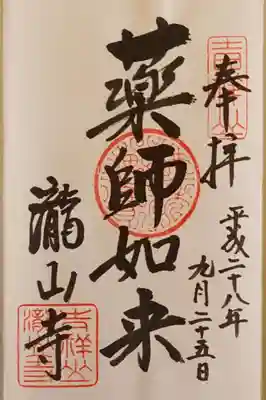 奉拝
平成二十八年
九月二十五日
薬師如来
瀧山寺
吉祥山